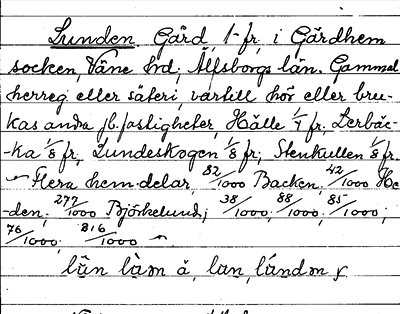 Lunden. Gård, 1 fr, i Gärdhem
socken, Väne hd, Älfsborgs län. Gammal
herreg eller säteri, vartill hör eller bru-
kas andra jb.fastigheter, Hälle 1/4 fr, Lerbäc-
-ka 1/8 fr, Lundeskogen 1/8 fr, Stenkullen 1/8 fr.
– Flera hem.delar, 82/1000 Backen, 42/1000 He-
-den, 277/1000 Björkelund; 38/1000, 88/1000, 85/1000,
76/1000, 816/1000 –